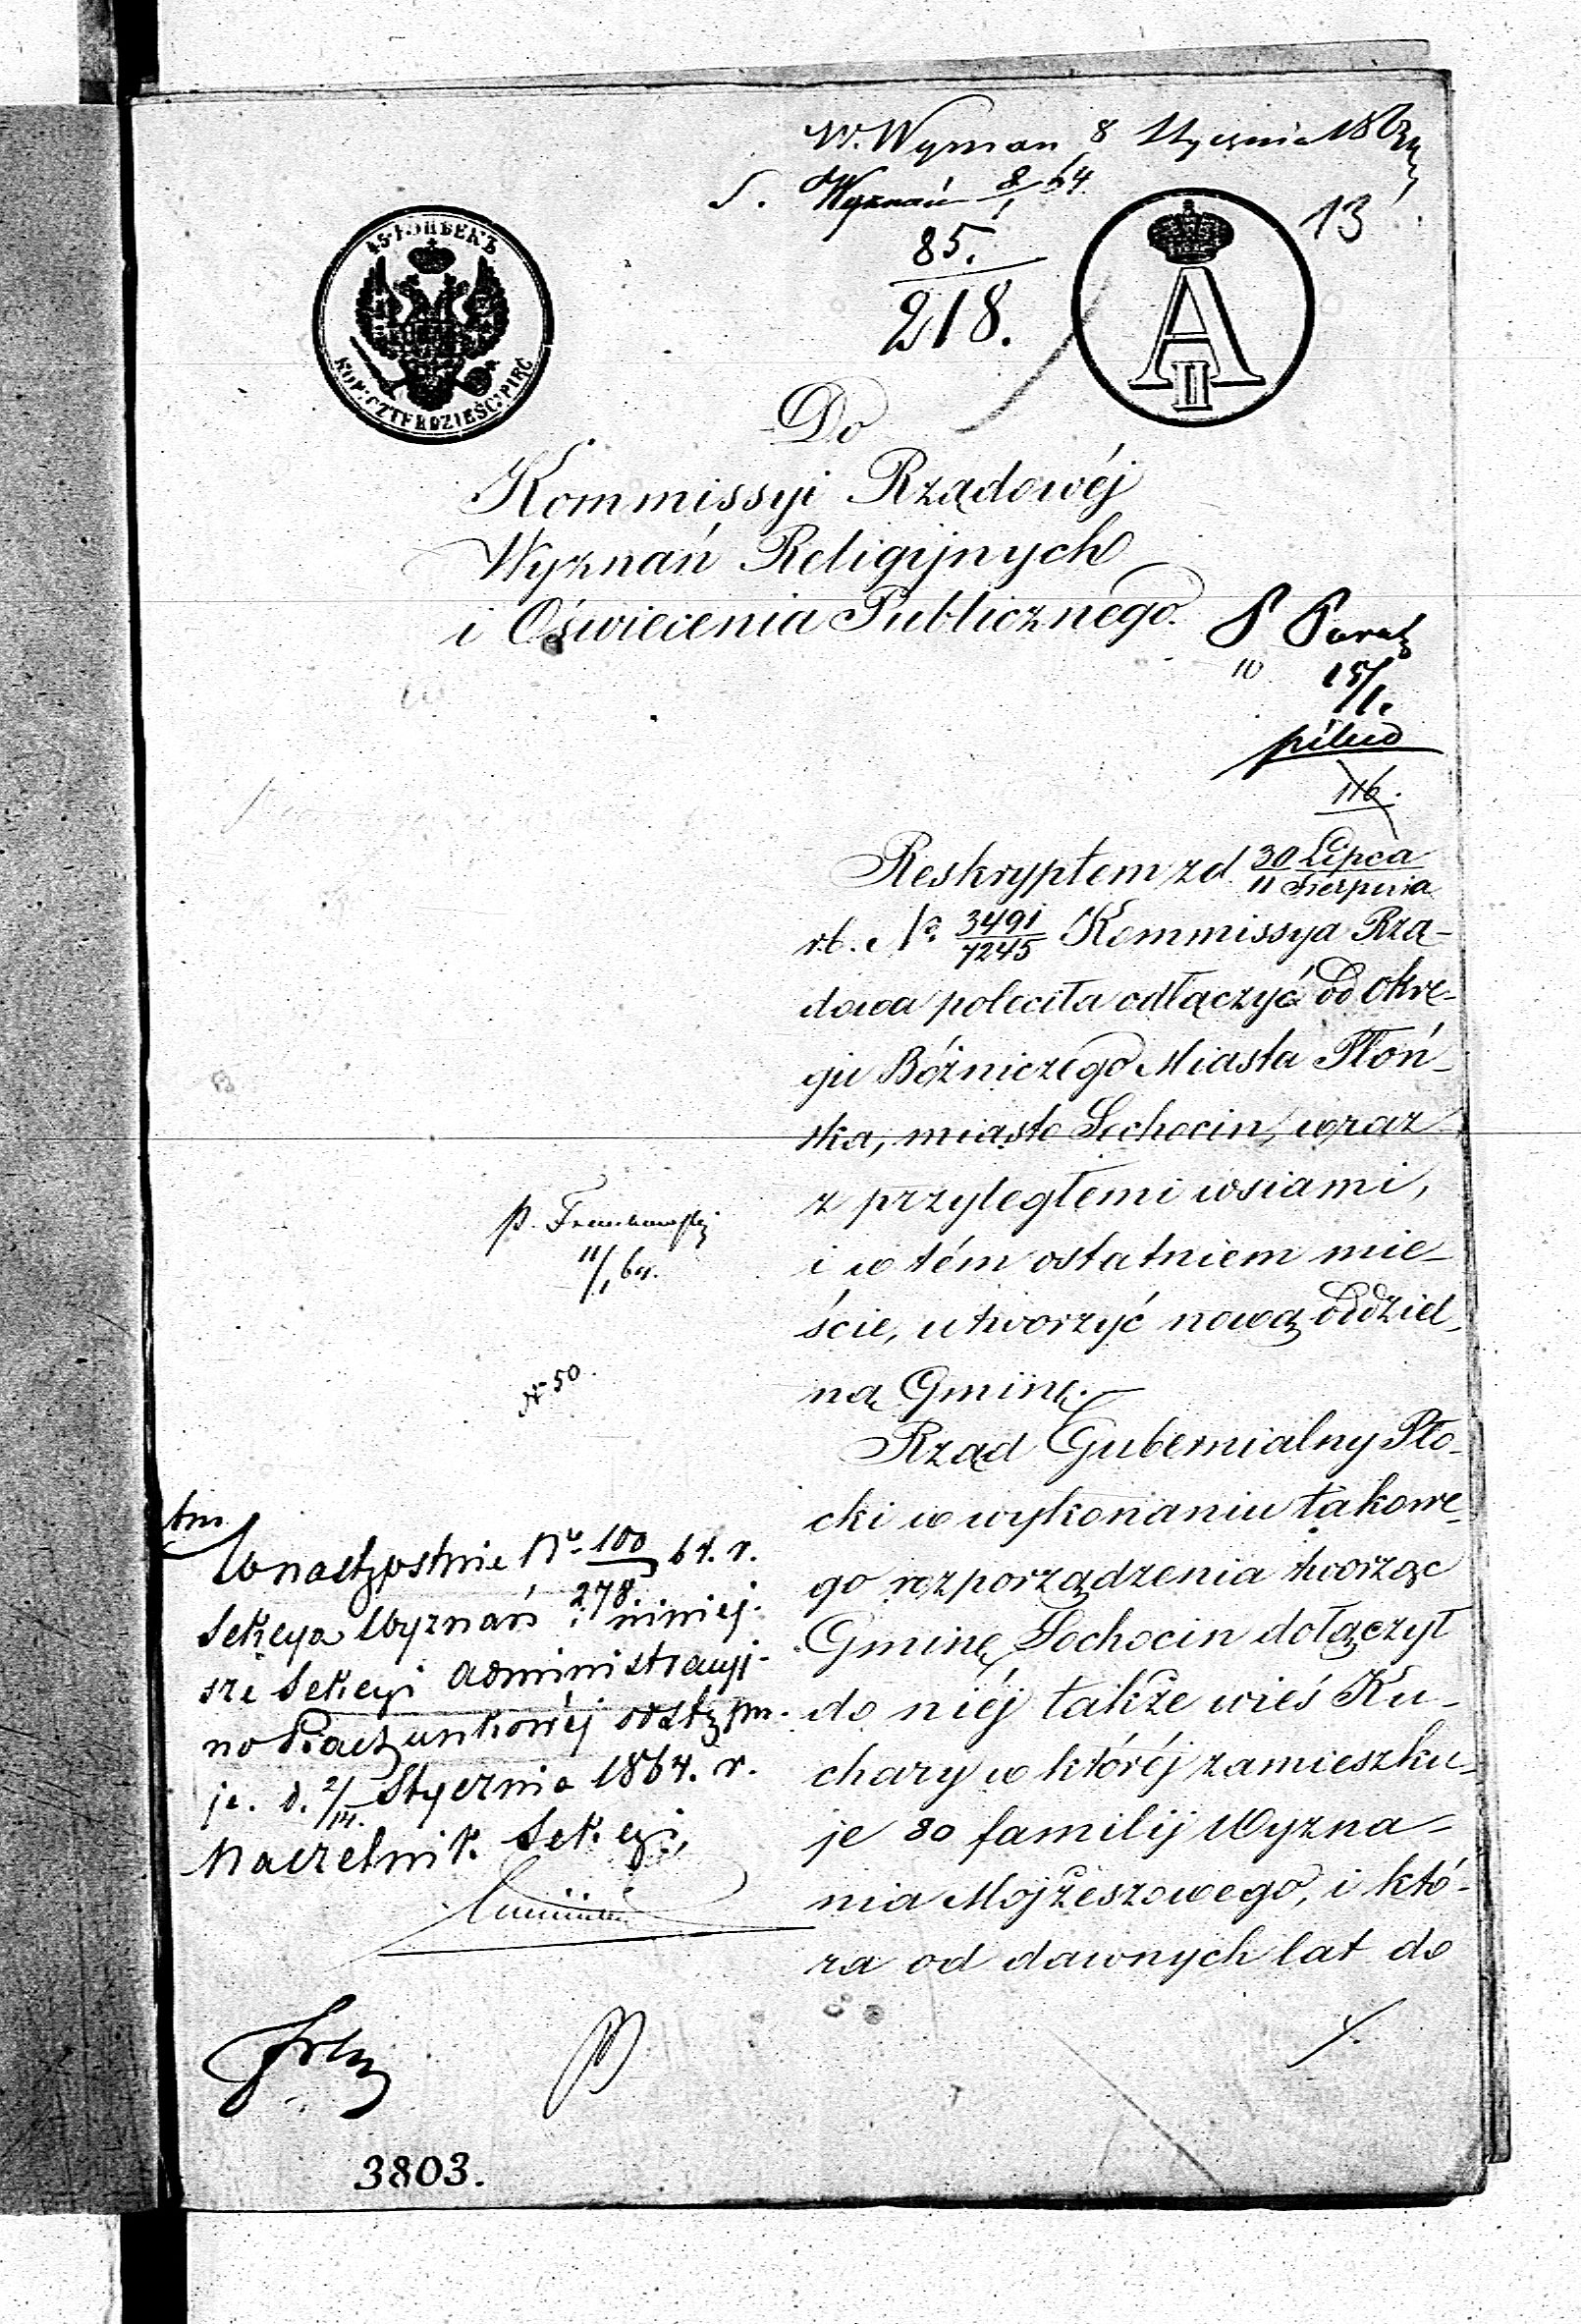 W. Wyznan 8 Stycznia 186
S. Wyznań 8/1 64.
13
85.
218.
45 КОПѢЕКЪ
KOP: CZTERDZIEŚCI PIĘĆ
A II
Do
Kommissyi Rządowéj
Wyznań Religijnych
i Oświecenia Publicznego.
10
15/1.
pilno
116.
Reskryptem z d 30 Lipca / 11 Sierpnia
r.b. No. 3491/7245 Kommissya Rzą-
dowa poleciła odłączyć od Okrę-
gu Bóżniczego Miasta Płoń-
ska, miasto Sochocin, wraz
z przyległemi wsiami,
i w tém ostatniem mie-
ście, utworzyć nową oddziel-
ną Gminę.
Rząd Gubernialny Pło-
cki w wykonaniu takowe-
go rozporządzenia tworząc
Gminę Sochocin dołączył
do niéj także wieś Ku-
chary w któréj zamieszku-
je 80 familij Wyzna-
nia Mojżeszowego, i któ-
ra od dawnych lat do
p.
11/1 64.
No 50.
W następstwie No. 100/278 64. r.
Sekcya Wyznań niniej-
sze Sekcyi Administracyj-
no Rachunkowéj odstępu-
je. d. 2/14. Stycznia 1864. r.
Naczelnik Sekcyi,
3803.